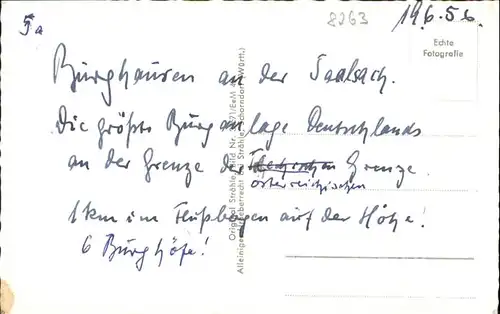 5a
8263
19.6.56.
Echte
Fotografie
Burghausen an der Saalsach.
Die größte Burganlage Deutschlands
an der Grenze der Grenze.
österreichischen
1 km im Flußbogen auf der Höhe!
6 Burghöfe!
Original Ströhle
Alleiniges Urheberrecht Ströhle, Schorndorf (Württ.)